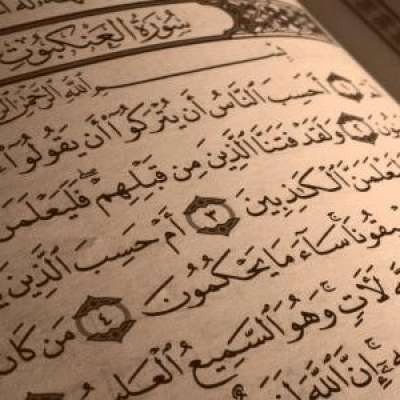 سُورَةُ الْعَنْكَبُوتِ
بِسْمِ اللَّهِ الرَّحْمَٰنِ
١ أَحَسِبَ النَّاسُ أَن يُتْرَكُوٓا۟ أَن يَقُولُوٓا۟
٢ وَلَقَدْ فَتَنَّا الَّذِينَ مِن قَبْلِهِمْ ۖ فَلَيَعْلَمَنَّ
وَلَيَعْلَمَنَّ الْكَٰذِبِينَ ٣ أَمْ حَسِبَ الَّذِينَ
سَآءَ مَا يَحْكُمُونَ ٤ مَن كَانَ
لَـَٔاتٍ ۚ وَهُوَ السَّمِيعُ الْعَلِيمُ
إِنَّ اللَّهَ